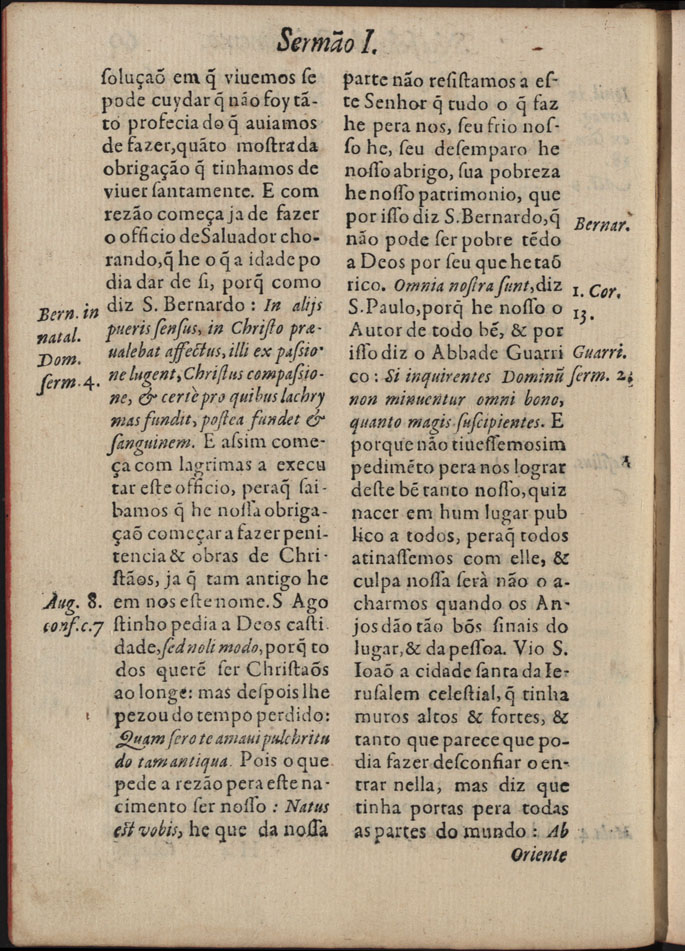 Sermão I.
soluçaõ em q̃ viuemos se
pode cuydar q̃ não foy tã-
to profecia do q̃ auiamos
de fazer, quãto mostra da
obrigação q̃ tinhamos de
viuer santamente. E com
rezão começa ja de fazer
o officio de Saluador cho-
rando, q̃ he o q̃ a idade po
dia dar de si, porq̃ como
diz S. Bernardo : In alijs
pueris sensus, in Christo præ-
ualebat affectus, illi ex passio-
ne lugent, Christus compassio-
ne, & certè pro quibus lachry
mas fundit, postea fundet &
sanguinem. E assim come-
ça com lagrimas a execu
tar este officio, peraq̃ sai-
bamos q̃ he nossa obriga-
çaõ começar a fazer peni-
tencia & obras de Chri-
stãos, ja q̃ tam antigo he
em nos este nome. S Ago
stinho pedia a Deos casti
dade, sed noli modo, porq̃ to
dos querẽ ser Christaõs
ao longe: mas despois lhe
pezou do tempo perdido:
Quam sero te amaui pulchritu
do tam antiqua. Pois o que
pede a rezão pera este na-
cimento ser nosso : Natus
est vobis, he que da nossa
Bern. in
natal.
Dom.
serm. 4.
Aug. 8.
conf. c. 7
parte não resistamos a es-
te Senhor q̃ tudo o q̃ faz
he pera nos, seu frio nos-
so he, seu desemparo he
nosso abrigo, sua pobreza
he nosso patrimonio, que
por isso diz S. Bernardo, q̃
não pode ser pobre tẽdo
a Deos por seu que he taõ
rico. Omnia nostra sunt, diz
S. Paulo, porq̃ he nosso o
Autor de todo bẽ, & por
isso diz o Abbade Guarri
co : Si inquirentes Dominũ
non minuentur omni bono,
quanto magis suscipientes. E
porque não tiuessemos im
pedimẽto pera nos lograr
deste bẽ tanto nosso, quiz
nacer em hum lugar pub
lico a todos, peraq̃ todos
atinassemos com elle, &
culpa nossa serà não o a-
charmos quando os An-
jos dão tão bõs sinais do
lugar, & da pessoa. Vio S.
Ioaõ a cidade santa da Ie-
rusalem celestial, q̃ tinha
muros altos & fortes, &
tanto que parece que po-
dia fazer desconfiar o en-
trar nella, mas diz que
tinha portas pera todas
as partes do mundo : Ab
Oriente
Bernar.
1. Cor.
13.
Guarri.
serm. 2.